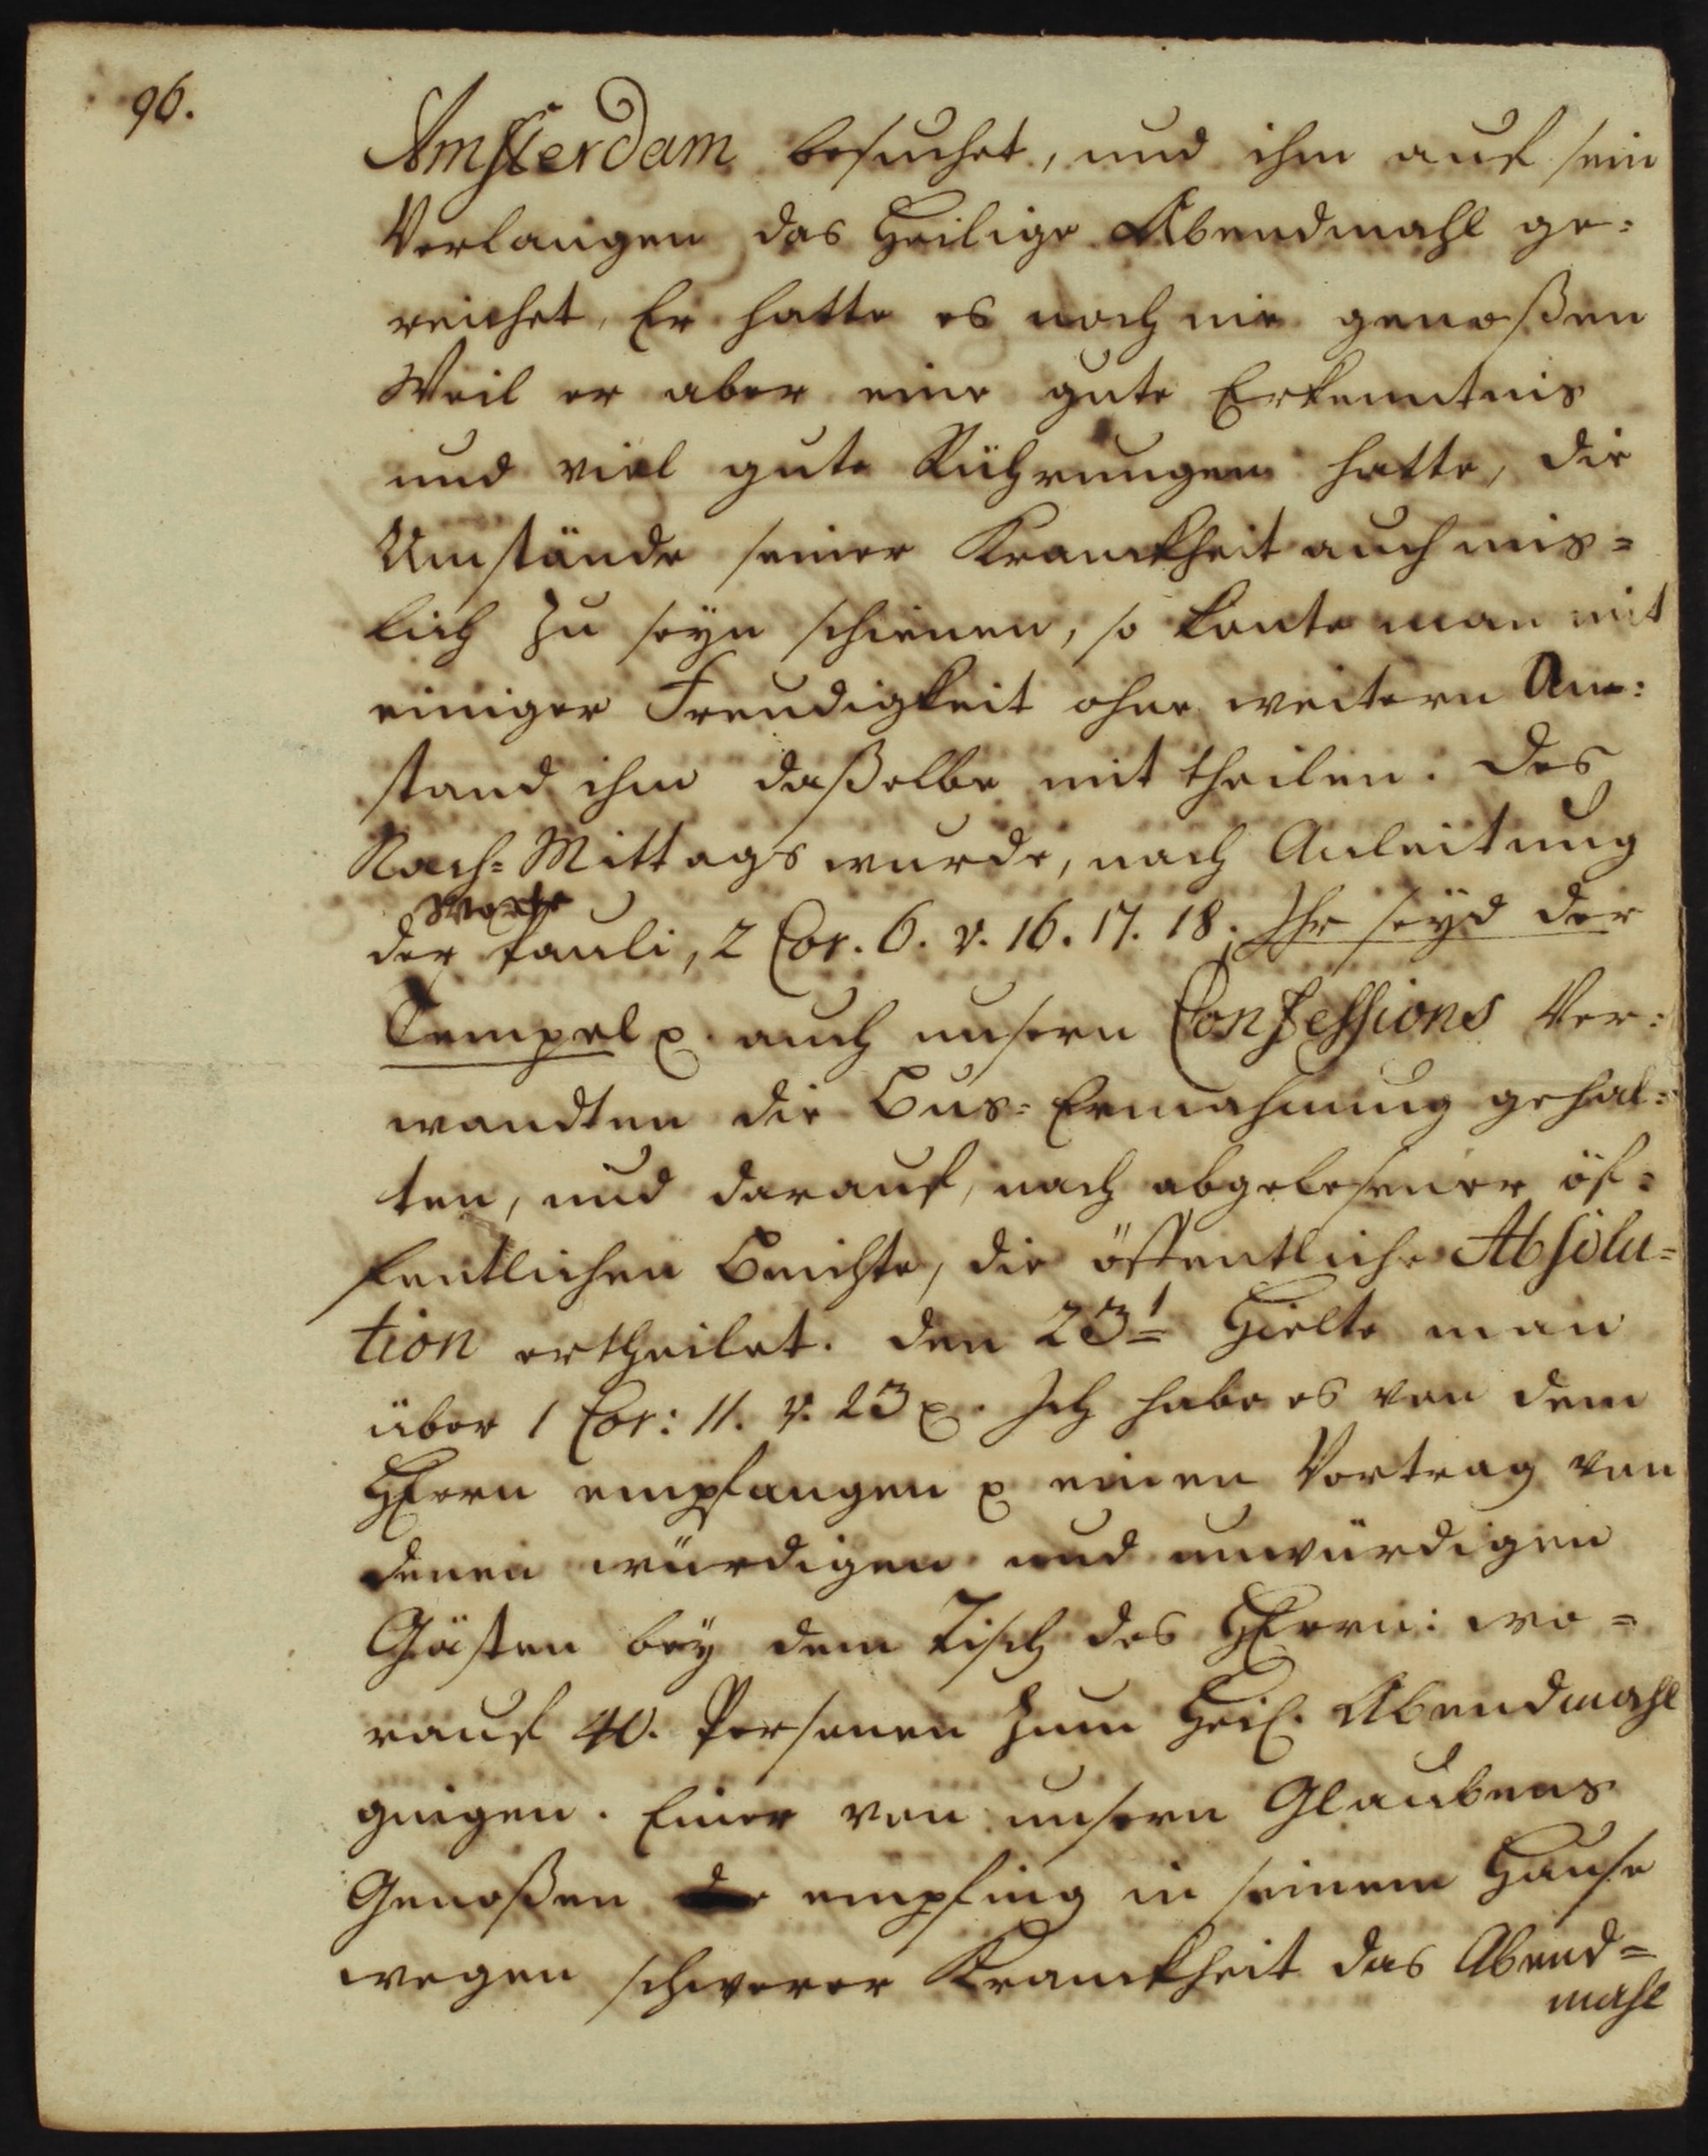 96.
Amsterdam besuchet, und ihm auf sein
Verlangen das Heilige Abendmahl ge=
reichet, Er hatte es noch nie genoßen
Weil er aber eine gute Erkenntnis
und viel gute Rührungen hatte, die
Umstände seiner Kranckheit auch mis=
lich zu seyn schienen, so konte man mit
einiger Freudigkeit ohne weitern An=
stand ihm daßelbe mit theilen. Des
Nach=Mittags wurde, nach Anleitung
Worte
der Pauli, 2 Cor. 6. v. 16. 17. 18. Ihr seyd der
Tempel ꝛc. auch unsern Confessions Ver=
wandten die Bus=Ermahnung gehal=
ten, und darauf, nach abgelesener öf=
fentlichen Beichte, die öffentliche Absolu=
tion ertheilet. den 23t Hielte man
über 1 Cor: 11. v. 23 ꝛc. Ich habe es von dem
HErrn empfangen ꝛc einen Vortrag von
denen würdigen und unwürdigen
Gästen bey dem Tisch des HErrn: wo=
rauf 40. Personen zum Heil. Abendmahl
gingen. Einer von unsern Glaubens
Genoßen empfing in seinem Hause
wegen schwerer Kranckheit das Abend=
mahl